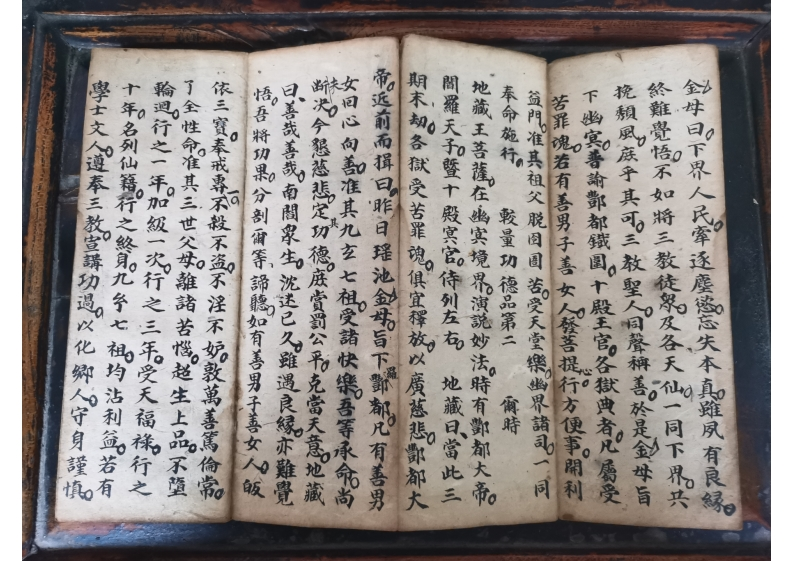 金母曰下界人民牽逐塵慾忘失本真雖夙有良緣
終難覺悟不如將三教徒衆及各天仙一同下界共
挽頹風庶乎其可三教聖人同聲稱善於是金母旨
下幽冥普諭酆都鐵圍十殿王宮各獄典者凡屬受
苦罪魂若有善男子善女人發菩提心行方便事開利
益門准其祖父脫囹圄苦受天堂樂幽界諸司一同
奉命施行　較量功德品第二　爾時
地藏王菩薩在幽冥境界演說妙法時有酆都大帝
閻羅天子暨十殿冥官侍列左右　地藏曰當此三
期末劫各獄受苦罪魂俱宜釋放以廣慈悲酆都大
帝近前而揖曰昨日瑤池金母旨下酆都凡有善男
女回心向善准其九玄七祖受諸快樂吾等承命尚
未斷決今懇慈悲定其功德庶賞罰公平克當天意地藏
曰善哉善哉南閻衆生沈迷已久雖遇良緣亦難覺
悟吾將功果分剖爾等諦聽如有善男子善女人皈
依三寶奉戒尊不殺不盜不淫不妒敦萬善篤倫常
了全性命准其三世父母離諸苦惱超生上品不墮
輪迴行之一年加級一次行之三年受天福祿行之
十年名列仙籍行之終身九玄七祖均沾利益若有
學士文人遵奉三教宣講功過以化鄉人守身謹慎